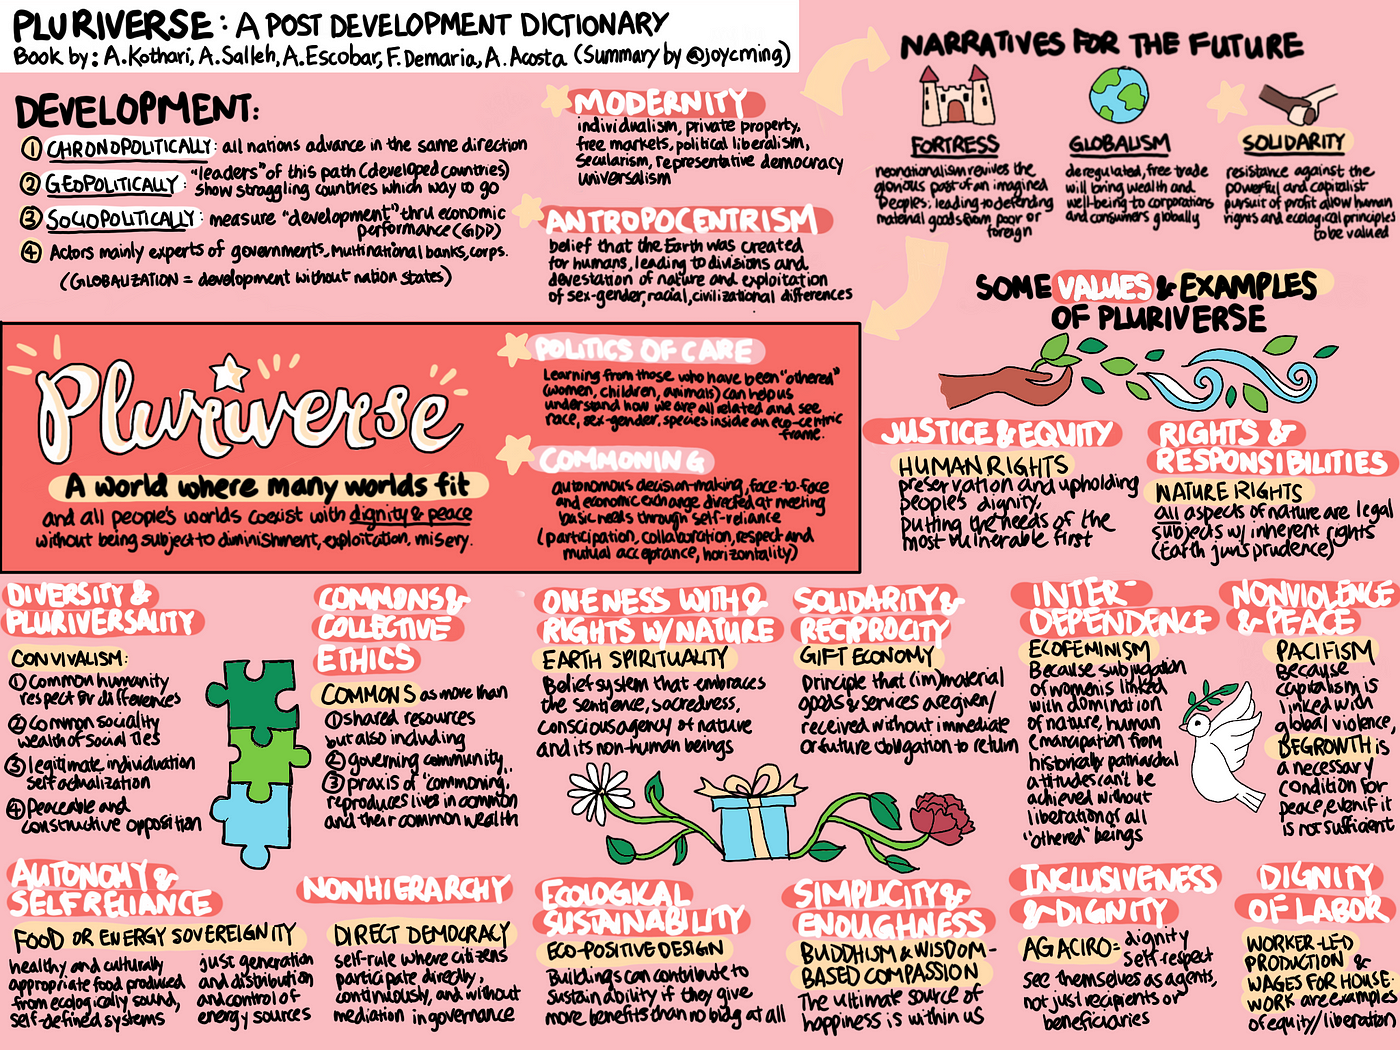 PLURIVERSE: A POST DEVELOPMENT DICTIONARY
Book by: A.Kothari, A.Salleh, A.Escobar, F.Demaria, A.Acosta (Summary by @joycming)
DEVELOPMENT:
① CHRONOPOLITICALLY: all nations advance in the same direction
② GEOPOLITICALLY: "leaders" of this path (developed countries)
show straggling countries which way to go
③ SOCIOPOLITICALLY: measure "development" thru economic
performance (GDD)
④ Actors mainly experts of governments, multinational banks, corps.
(GLOBALIZATION = development without nation states)
MODERNITY
individualism, private property,
free markets, political liberalism,
secularism, representative democracy
universalism
ANTROPOCENTRISM
belief that the Earth was created
for humans, leading to divisions and
devestation of nature and exploitation
of sex-gender, racial, civilizational differences
NARRATIVES FOR THE FUTURE
FORTRESS
neonationalism revives the
glorious past of an imagined
Peoples, leading to defending
material goods from poor or
foreign
GLOBALISM
deregulated, free trade
will bring wealth and
well-being to corporations
and consumers globally
SOLIDARITY
resistance against the
powerful and capitalist
pursuit of profit allow human
rights and ecological principles
to be valued
Pluriverse
A world where many worlds fit
and all people's worlds coexist with dignity & peace
without being subject to diminishment, exploitation, misery.
POLITICS OF CARE
Learning from those who have been "othered"
(women, children, animals) can help us
understand how we are all related and see
race, sex-gender, species inside an eco-centric
frame.
COMMONING
autonomous decision-making, face-to-face
and economic exchange directed at meeting
basic needs through self-reliance
(participation, collaboration, respect and
mutual acceptance, horizontality)
SOME VALUES & EXAMPLES
OF PLURIVERSE
JUSTICE & EQUITY
HUMAN RIGHTS
preservation and upholding
people's dignity,
putting the needs of the
most vulnerable first
RIGHTS &
RESPONSIBILITIES
NATURE RIGHTS
all aspects of nature are legal
subjects w/ inherent rights
(Earth jurisprudence)
DIVERSITY &
PLURIVERSALITY
CONVIVALISM:
① Common humanity
respect for differences
② Common sociality
wealth of social ties
③ legitimate individuation
self actualization
④ Peaceable and
constructive opposition
COMMONS &
COLLECTIVE
ETHICS
COMMONS as more than
① shared resources
but also including
② governing community,
③ praxis of "commoning,"
reproduces lives in common
and their common wealth
ONENESS WITH &
RIGHTS W/ NATURE
EARTH SPIRITUALITY
Belief system that embraces
the sentience, sacredness,
conscious agency of nature
and its non-human beings
SOLIDARITY &
RECIPROCITY
GIFT ECONOMY
Principle that (im)material
goods & services are given/
received without immediate
or future obligation to return
INTER-
DEPENDENCE
ECOFEMINISM
Because subjugation
of women is linked
with domination
of nature, human
emancipation from
historically patriarchal
attitudes can't be
achieved without
liberation of all
"othered" beings
NONVIOLENCE
& PEACE
PACIFISM
Because
capitalism is
linked with
global violence,
DEGROWTH is
a necessary
condition for
peace, even if it
is not sufficient
AUTONOMY &
SELF RELIANCE
FOOD OR ENERGY SOVEREIGNITY
healthy and culturally
appropriate food produced
from ecologically sound,
self-defined systems
just generation
and distribution
and control of
energy sources
NONHIERARCHY
DIRECT DEMOCRACY
self-rule where citizens
participate directly,
continuously, and without
mediation in governance
ECOLOGICAL
SUSTAINABILITY
ECO-POSITIVE DESIGN
Buildings can contribute to
sustainability if they give
more benefits than no bldg at all
SIMPLICITY &
ENOUGHNESS
BUDDHISM & WISDOM-
BASED COMPASSION
The ultimate source of
happiness is within us
INCLUSIVENESS
& DIGNITY
AGACIRO = dignity
self-respect
see themselves as agents,
not just recipients or
beneficiaries
DIGNITY
OF LABOR
WORKER-LED
PRODUCTION &
WAGES FOR HOUSE-
WORK are examples
of equity/liberation